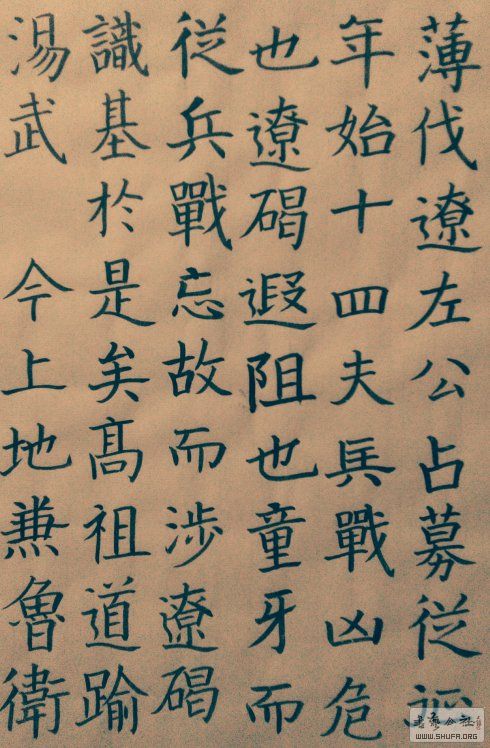 薄伐遼左公占募従
年始十四夫兵戰凶危
也遼碣遐阻也童牙而
従兵戰忘故而涉遼碣
識基於是矣髙祖道踰
湯武 今上地兼魯衛
WWW.SHUFA.ORG